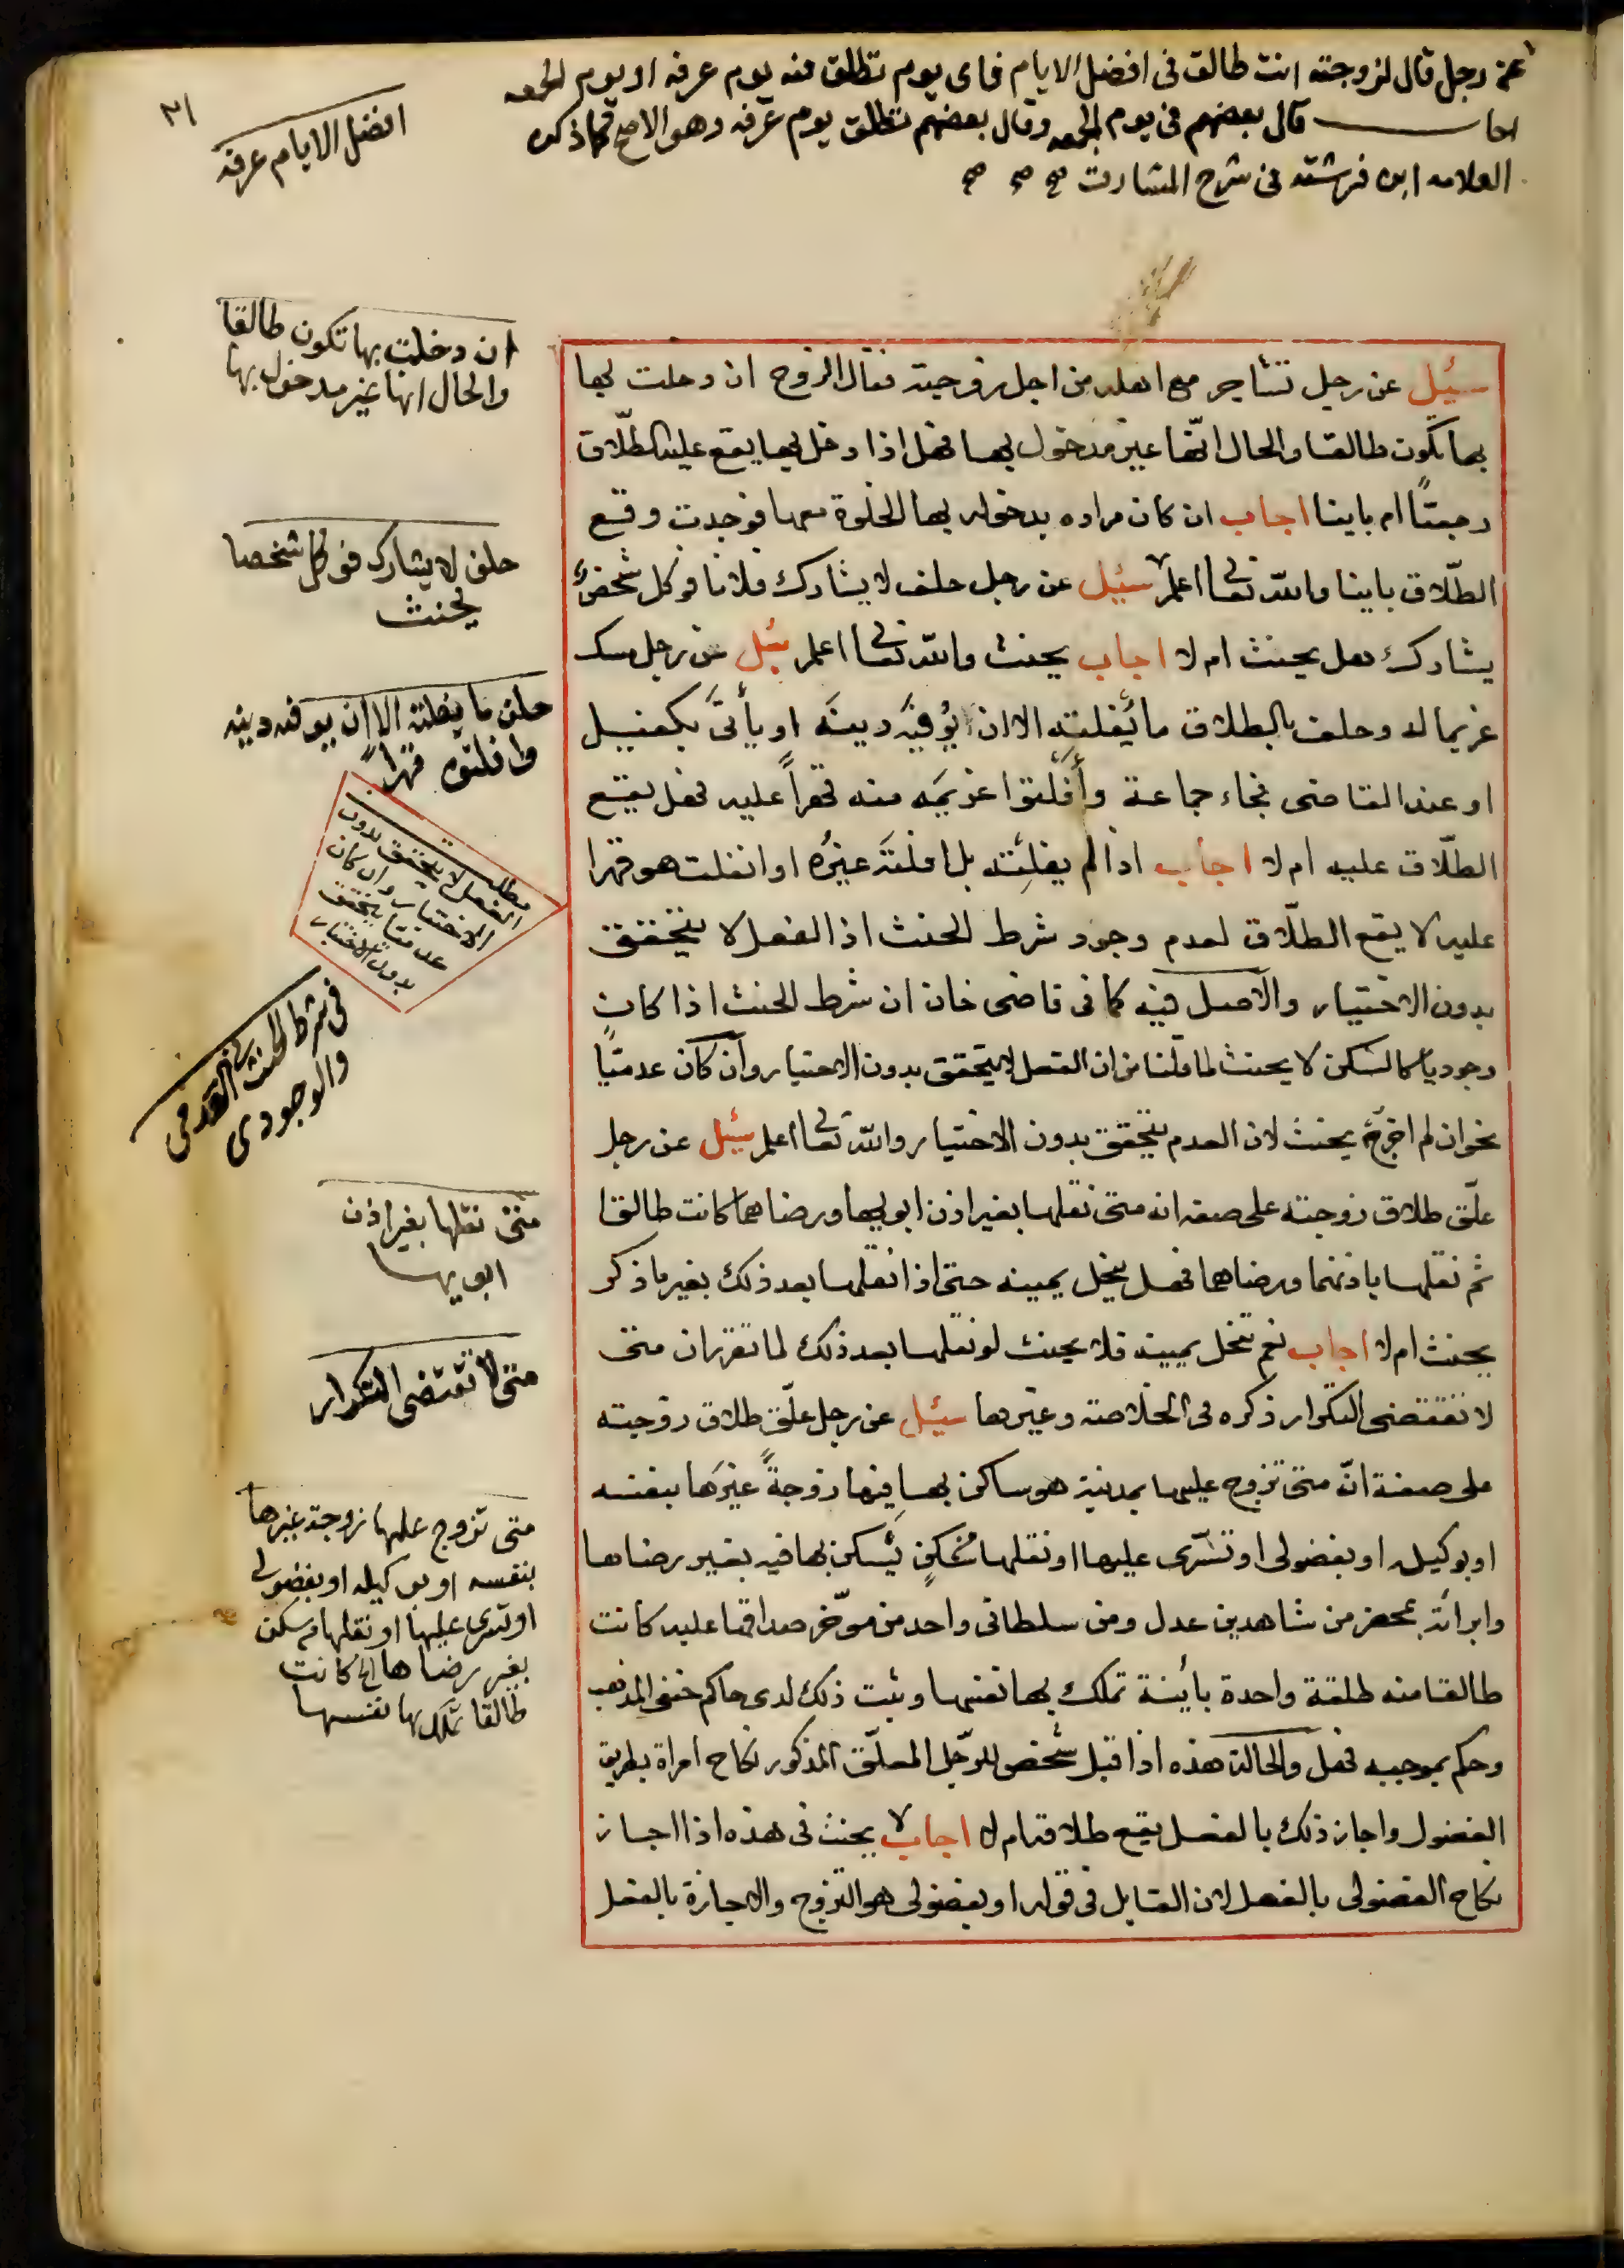 عن رجل قال لزوجته انت طالق فى افضل الايام فاى يوم تطلق فيه يوم عرفه او يوم الجمعه
اجاب قال بعضهم فى يوم الجمعه وقال بعضهم تطلق يوم عرفه وهو الاصح كما ذكره
العلامه ابن فرشته فى شرح المشارق صح صح صح
٣١
افضل الايام عرفه
سئيل عن رجل تشاجر مع اهله من اجل زوجته فقال الزوج ان دخلت بها
بها تكون طالقا والحال انّها غير مدخول بها فهل اذا دخل بها يقع عليه الطلّاق
رجعيًّا ام باينا اجاب ان كان مراده بدخوله بها الخلوة معها فوجدت وقع
الطلّاق باينا والله تعالى اعلم سئيل عن رجل حلف لا يشارك فلانا فوكل شخصٌ
يشاركه هل يحنث ام لا اجاب يحنث والله تعالى اعلم سئيل عن رجل مسك
غريما له وحلف بالطلاق ما يُفلته الا ان يُوفِيَه دينَه او يأتىَ بكفيل
او عند القاضى فجاء جماعة وأفلَتوا غريمَه منه قهراً عليه فهل يقع
الطلّاق عليه ام لا اجاب اذا لم يفلِته بل افلتَه غيرُه او انفلت هو قهرا
عليه لا يقع الطلّاق لعدم وجود شرط الحنث اذ الفعل لا يتحقق
بدون الاختيار والاصل فيه كما فى قاضى خان ان شرط الحنث اذا كان
وجوديا كالسكن لا يحنث لما قلنا من ان الفعل لا يتحقق بدون الاختيار وان كان عدميًّا
نحو ان لم اخرج يحنث لان العدم يتحقق بدون الاختيار والله تعالى اعلم سئيل عن رجل
علّق طلاق زوجته على صفه انه متى نقلها بغير اذن ابويها ورضاهما كانت طالقا
ثم نقلها باذنهما ورضاهما فهل ينحل يمينه حتى اذا نقلها بعد ذلك بغير ما ذكر
يحنث ام لا اجاب نعم تنحل يمينه فلا يحنث لو نقلها بعد ذلك لما تقرر ان متى
لا تقتضى التكرار ذكره فى الخلاصة وغيرها سئيل عن رجل علّق طلاق زوجته
على صفة انّه متى تزوج عليها بمدينة هو ساكن بها فيها زوجةً غيرَها بنفسه
او بوكيله او بفضولى او تسّرى عليها او نقلها من سكنٍ يسكن بها فيه بغير رضاها
وابرأته بمحضر من شاهدين عدل ومن سلطانى واحد من موّخر صداقها عليه كانت
طالقا منه طلقة واحدة بأينة تملك بها نفسها وثبت ذلك لدى حاكم حنفى المذهب
وحكم بموجبه فهل والحالة هذه اذا قبل شخص للرّجل المعلّق المذكور نكاح امراة بطريق
الفضول واجاز ذلك بالفعل يقع طلاقه ام لا اجاب لا يحنث فى هذه اذا اجاز
نكاح الفضولى بالفعل لان القايل فى قوله او بفضولى هو التزوج والاجازة بالفعل
ان دخلت بها تكون طالقا
والحال انها غير مدخول بها
حلف لا يشارك فوكل شخصا
يحنث
حلف ما يفلته الا ان يوفه دينه
وافلتوه قهراً
مطلب
الفعل لا يتحقق بدون
الاختيار وان كان
عدميا يتحقق
بدون الاختيار
فى شرط الحنث العدمى
والوجودى
متى نقلها بغير اذن
ابويها
متى لا تقتضى التكرار
متى تزوج عليها زوجة غيرها
بنفسه او بوكيله او بفضولى
او تسرى عليها او نقلها من سكن
بغير رضاها الخ كانت
طالقا تملك بها نفسها